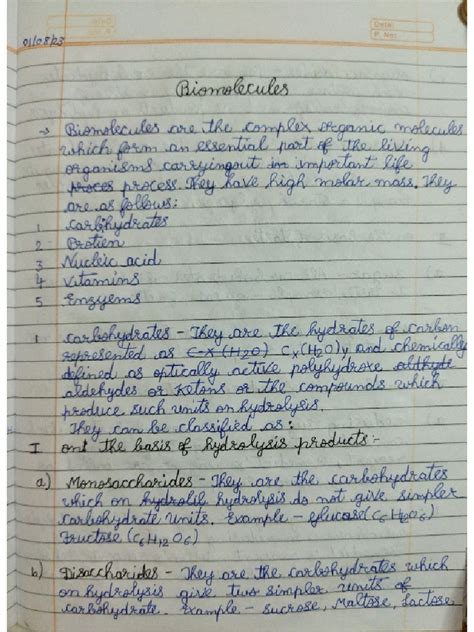 Date:
P. No:
01/08/23
Biomolecules
→ Biomolecules are the complex organic molecules
which form an essential part of the living
organisms carryingout in important life
proces process. They have high molar mass. They
are as follows:
1 Carbohydrates
2 Protien
3 Nucleic acid
4 Vitamins
5 Enzyems
1 Carbohydrates - They are the hydrates of carbon
represented as C-x (H2O) Cx(H2O)y and chemically
defined as optically active polyhydroxe aldhyde
aldehydes or Ketons or the compounds which
produce such units on hydrolysis.
They can be classified as:
I on the basis of hydrolysis products:-
a) Monosaccharides - They are the carbohydrates
which on hydrolil hydrolysis do not give simpler
carbohydrate units. Example - glucose (C6H12O6)
fructose (C6H12O6)
b) Disaccharides - They are the carbohydrates which
on hydrolysis give two simpler units of
carbohydrate. example - sucrose, Maltose, Lactose